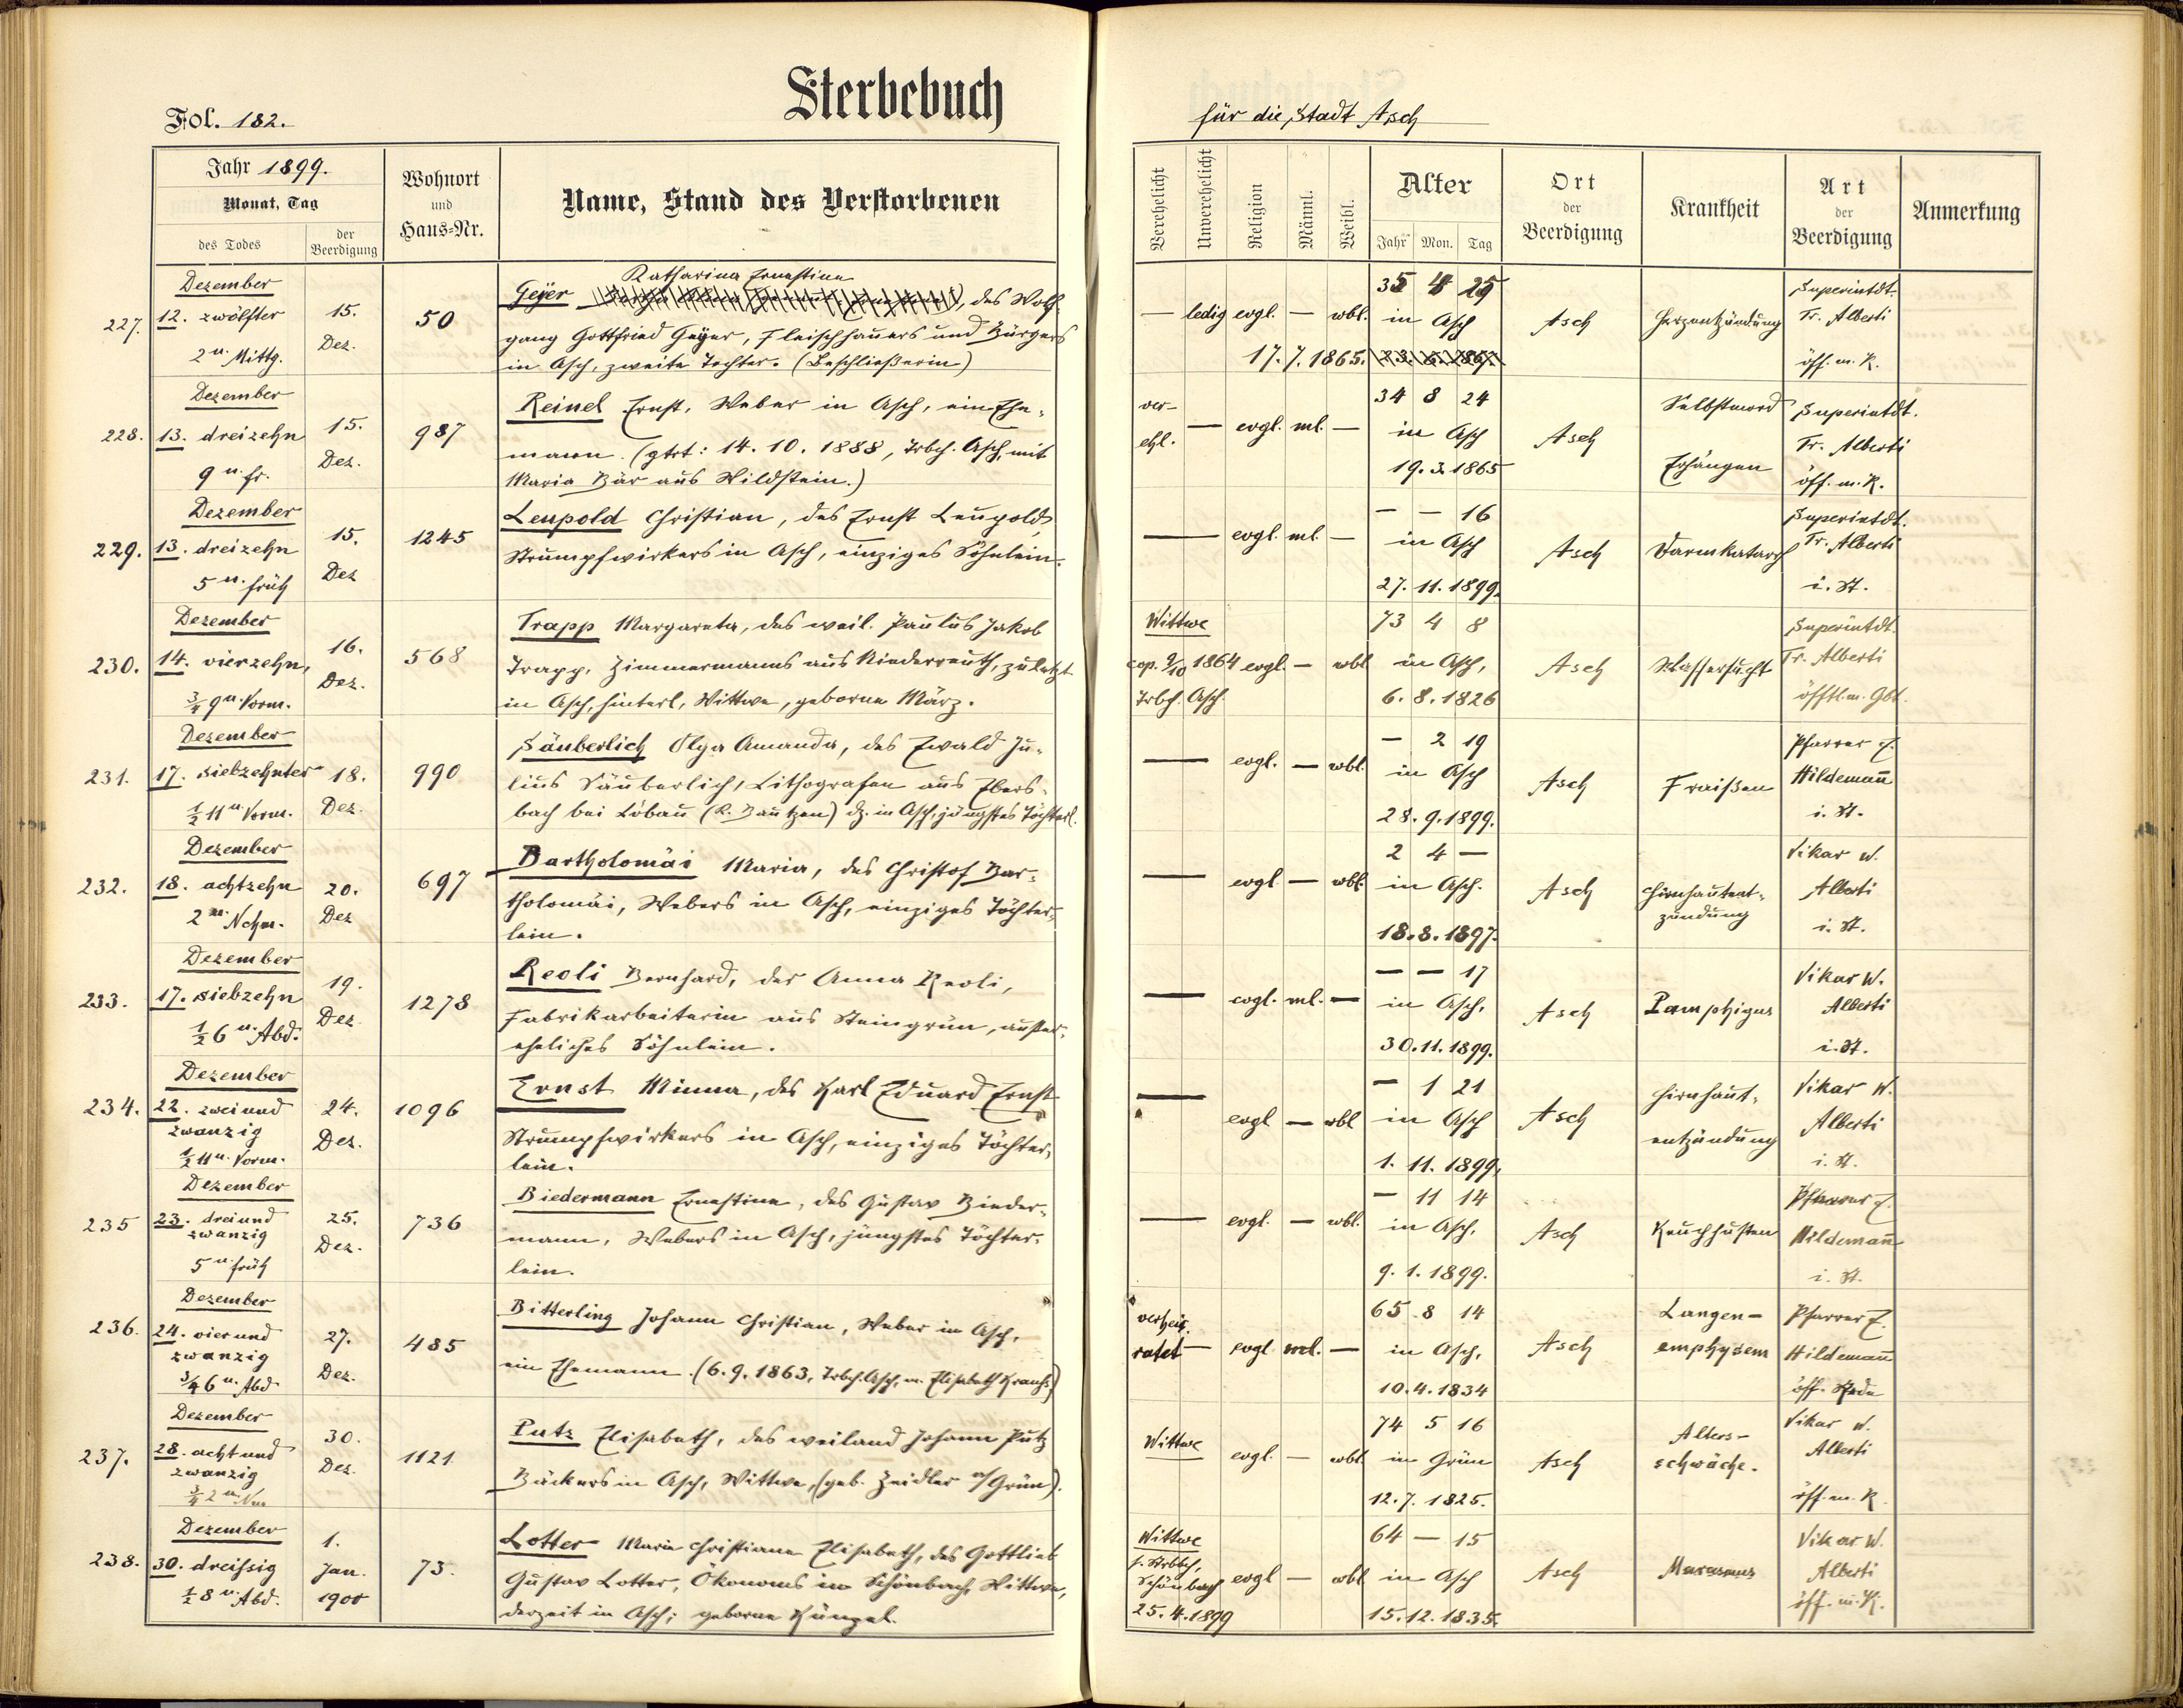 Fol. 182.
Sterbebuch
für die Stadt Asch
Jahr 1899.
Monat, Tag
des Todes
der Beerdigung
Wohnort und Haus-Nr.
Name, Stand des Verstorbenen
Verehelicht
Unverehelicht
Religion
Männl.
Weibl.
Alter
Jahr Mon. Tag
Ort der Beerdigung
Krankheit
Art der Beerdigung
Anmerkung
227.
Dezember
12. zwölfter
2 u. Mittg.
15.
Dez.
50
Katharina Ernestine
Geÿer, des Wolf-
gang Gottfried Geÿer, Fleischhauers und Bürgers
in Asch, zweite Tochter. (Beschließerin)
— ledig evgl. — wbl.
35 4 25
in Asch
17. 7. 1865.
Asch
Herzentzündung
Superintdt.
Tr. Alberti
öff. m. R.
228.
Dezember
13. dreizehn
9 u. fr.
15.
Dez.
987
Reinel Ernst, Weber in Asch, ein Ehe-
mann. (gtrt: 14. 10. 1888, Trbch. Asch, mit
Maria Bär aus Wildstein.)
ver-
ehl.
— evgl. ml. —
34 8 24
in Asch
19. 3. 1865
Asch
Selbstmord
Erhängen
Superintdt.
Tr. Alberti
öff. m. R.
229.
Dezember
13. dreizehn
5 u. früh
15.
Dez
1245
Leupold Christian, des Ernst Leupold,
Strumpfwirkers in Asch, einziges Söhnlein.
— evgl. ml. —
— — 16
in Asch
27. 11. 1899.
Asch
Darmkatarrh
Superintdt.
Tr. Alberti
i. St.
230.
Dezember
14. vierzehn,
3/4 9 u. Vorm.
16.
Dez.
568
Trapp Margareta, des weil. Paulus Jakob
Trapp, Zimmermanns aus Niederreuth, zuletzt
in Asch, hinterl. Wittwe, geborne März.
Wittwe
cop. 9/10 1864 evgl. — wbl
Trbch. Asch.
73 4 8
in Asch,
6. 8. 1826
Asch
Wassersucht
Superintdt.
Tr. Alberti
öfftl. m. Gbt.
231.
Dezember
17. siebzehnter
1/2 11 u. Vorm.
18.
Dez.
990
Säuberlich Olga Amanda, des Ewald Ju-
lius Säuberlich, Lithografen aus Ebers-
bach bei Löbau (K. Bautzen) dz. in Asch, jüngstes Töchterl.
— evgl. — wbl.
— 2 19
in Asch
28. 9. 1899.
Asch
Fraißen
Pfarrer E.
Hildemann
i. St.
232.
Dezember
18. achtzehn
2 u. Nchm.
20.
Dez
697
Bartholomäi Maria, des Christof Bar-
tholomäi, Webers in Asch, einziges Töchter-
lein.
— evgl — wbl.
2 4 —
in Asch.
18. 8. 1897.
Asch
Hirnhautent-
zündung
Vikar W.
Alberti
i. St.
233.
Dezember
17. siebzehn
1/2 6 u. Abd.
19.
Dez
1278
Reoli Bernhard, der Anna Reoli,
Fabrikarbeiterin aus Steingrün, außer-
eheliches Söhnlein.
— evgl. ml. —
— — 17
in Asch,
30. 11. 1899.
Asch
Pamphigus
Vikar W.
Alberti
i. St.
234.
Dezember
22. zwei und
zwanzig
1/2 11 u. Vorm.
24.
Dez.
1096
Ernst Minna, des Karl Eduard Ernst
Strumpfwirkers in Asch, einziges Töchter-
lein.
— evgl — wbl
— 1 21
in Asch
1. 11. 1899.
Asch
Hirnhaut-
entzündung
Vikar W.
Alberti
i. St.
235
Dezember
23. drei und
zwanzig
5 u. früh
25.
Dez.
736
Biedermann Ernestine, des Gustav Bieder-
mann, Webers in Asch, jüngstes Töchter-
lein.
— evgl. — wbl.
— 11 14
in Asch,
9. 1. 1899.
Asch
Keuchhusten
Pfarrer E.
Hildemann
i. St.
236.
Dezember
24. vier und
zwanzig
3/4 6 u. Abd
27.
Dez.
485
Bitterling Johann Christian, Weber in Asch,
ein Ehemann. (6. 9. 1863, Trbch. Asch, m. Elisabeth Krauß)
verhei-
ratet — evgl ml. —
65 8 14
in Asch,
10. 4. 1834
Asch
Lungen-
emphysem
Pfarrer E.
Hildemann
öff. Rede
237.
Dezember
28. acht und
zwanzig
3/4 2 u. Nm
30.
Dez.
1121
Putz Elisabeth, des weiland Johann Putz
Bäckers in Asch, Wittwe, (geb. Zeidler a/ Grün).
Wittwe evgl. — wbl.
74 5 16
in Grün
12. 7. 1825.
Asch
Alters-
schwäche.
Vikar W.
Alberti
öff. m. R.
238.
Dezember
30. dreissig
1/2 8 u. Abd.
1.
Jan.
1900
73.
Lotter Maria Christiane Elisabeth, des Gottlieb
Gustav Lotter, Ökonoms in Schönbach Wittwe,
derzeit in Asch; geborne Künzel.
Wittwe
s. Strbbch,
Schönbach evgl — wbl
25. 4. 1899
64 — 15
in Asch
15. 12. 1835.
Asch
Marasmus
Vikar W.
Alberti
öff. m. R.